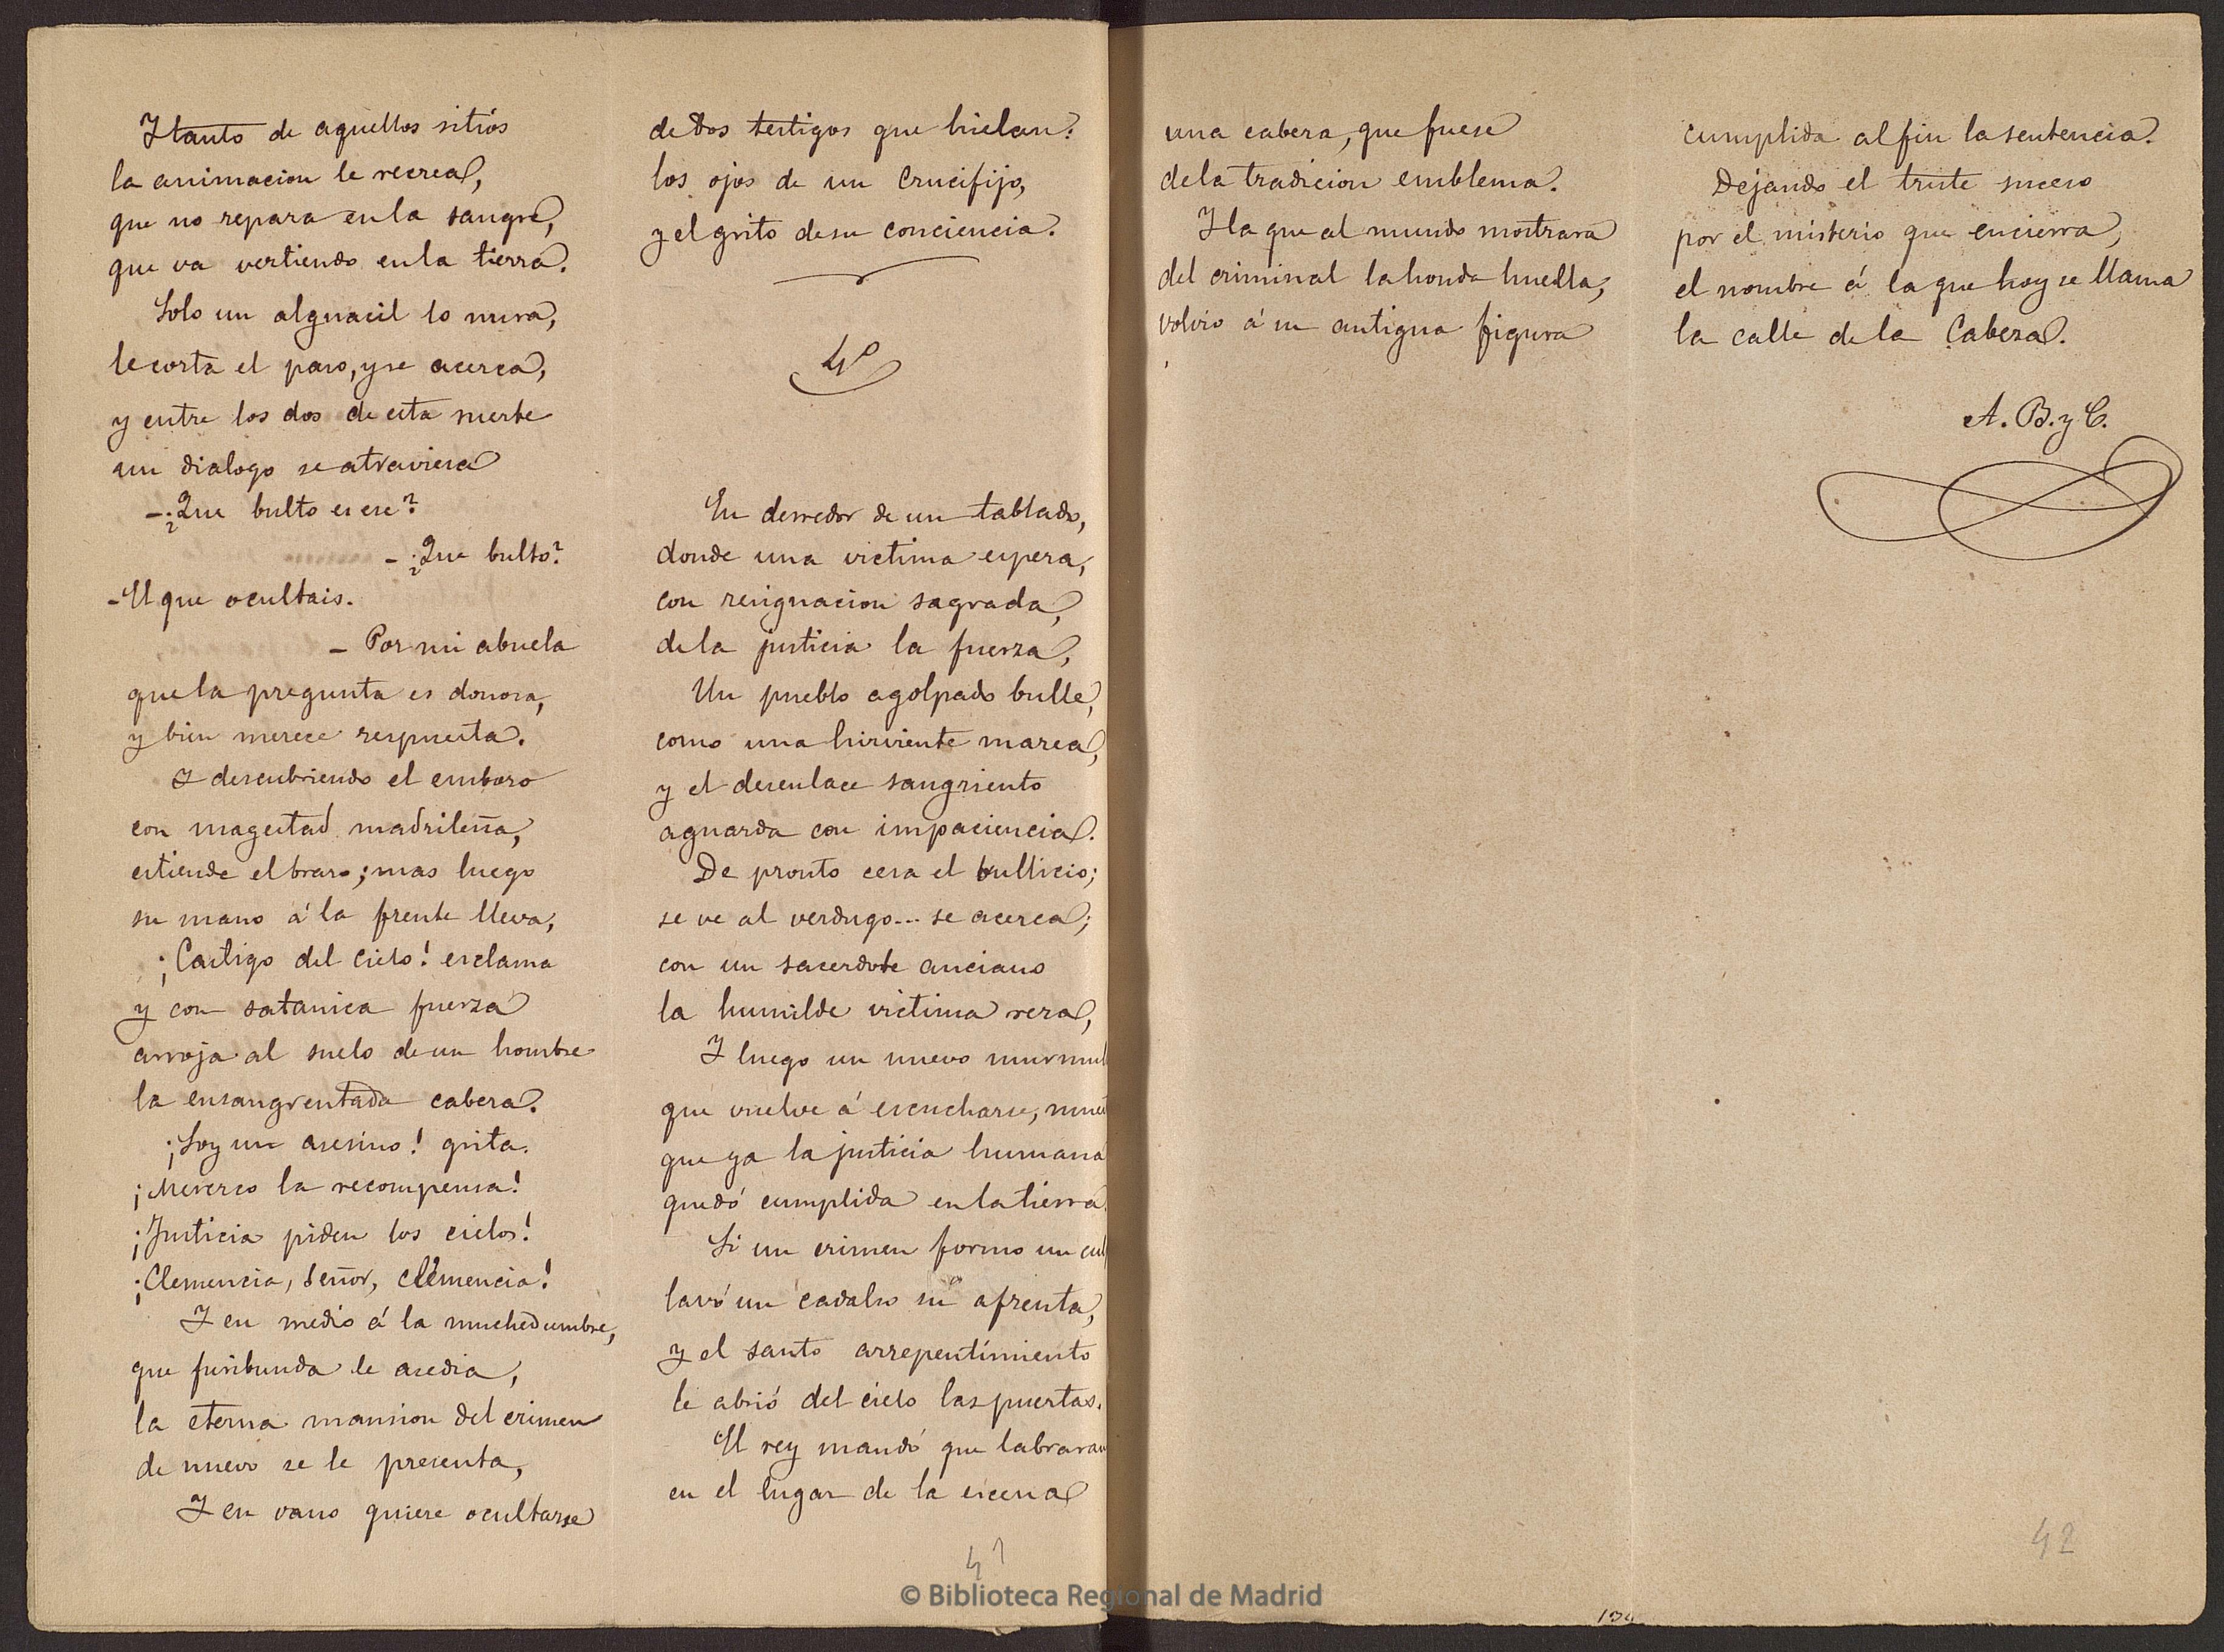 Y tanto de aquellos sitios
la animacion le recrea,
que no repara en la sangre,
que va vertiendo en la tierra.
Solo un alguacil lo mira,
le corta el paso, y se acerca,
y entre los dos de esta suerte
un dialogo se atraviesa
-¿Que bulto es ese?
-¿Que bulto?
-El que ocultais.
- Por mi abuela
que la pregunta es donosa,
y bien merece respuesta.
Y descubriendo el embozo
con magestad madrileña,
estiende el brazo; mas luego
su mano á la frente lleva,
¡Castigo del cielo! esclama
y con satanica fuerza
arroja al suelo de un hombre
la ensangrentada cabeza.
¡Soy un asesino! grita.
¡Merezco la recompensa!
¡Justicia piden los cielos!
¡Clemencia, Señor, clemencia!
Y en medio á la muchedumbre,
que furibunda le asedia,
la eterna mansion del crimen
de nuevo se le presenta,
Y en vano quiere ocultarse
de dos testigos que hielan:
los ojos de un Crucifijo,
y el grito de su conciencia.
4º
En derredor de un tablado,
donde una victima espera,
con resignacion sagrada,
de la justicia la fuerza,
Un pueblo agolpado bulle,
como una hirviente marea,
y el desenlace sangriento
aguarda con impaciencia.
De pronto cesa el bullicio;
se ve al verdugo... se acerca;
con un sacerdote anciano
la humilde victima reza,
Y luego un nuevo murmul
que vuelve á escucharse, mues
que ya la justicia humana
quedó cumplida en la tierra.
Si un crimen formo un cul
lavó un cadalso su afrenta,
y el santo arrepentimiento
le abrió del cielo las puertas.
El rey mandó que labraran
en el lugar de la escena
41
una cabeza, que fuese
de la tradicion emblema.
Y la que al mundo mostrara
del criminal la honda huella,
volvio á su antigua figura
cumplida al fin la sentencia.
Dejando el triste suceso
por el misterio que encierra,
el nombre á la que hoy se llama
la calle de la Cabeza.
A. B. y C.
42
© Biblioteca Regional de Madrid